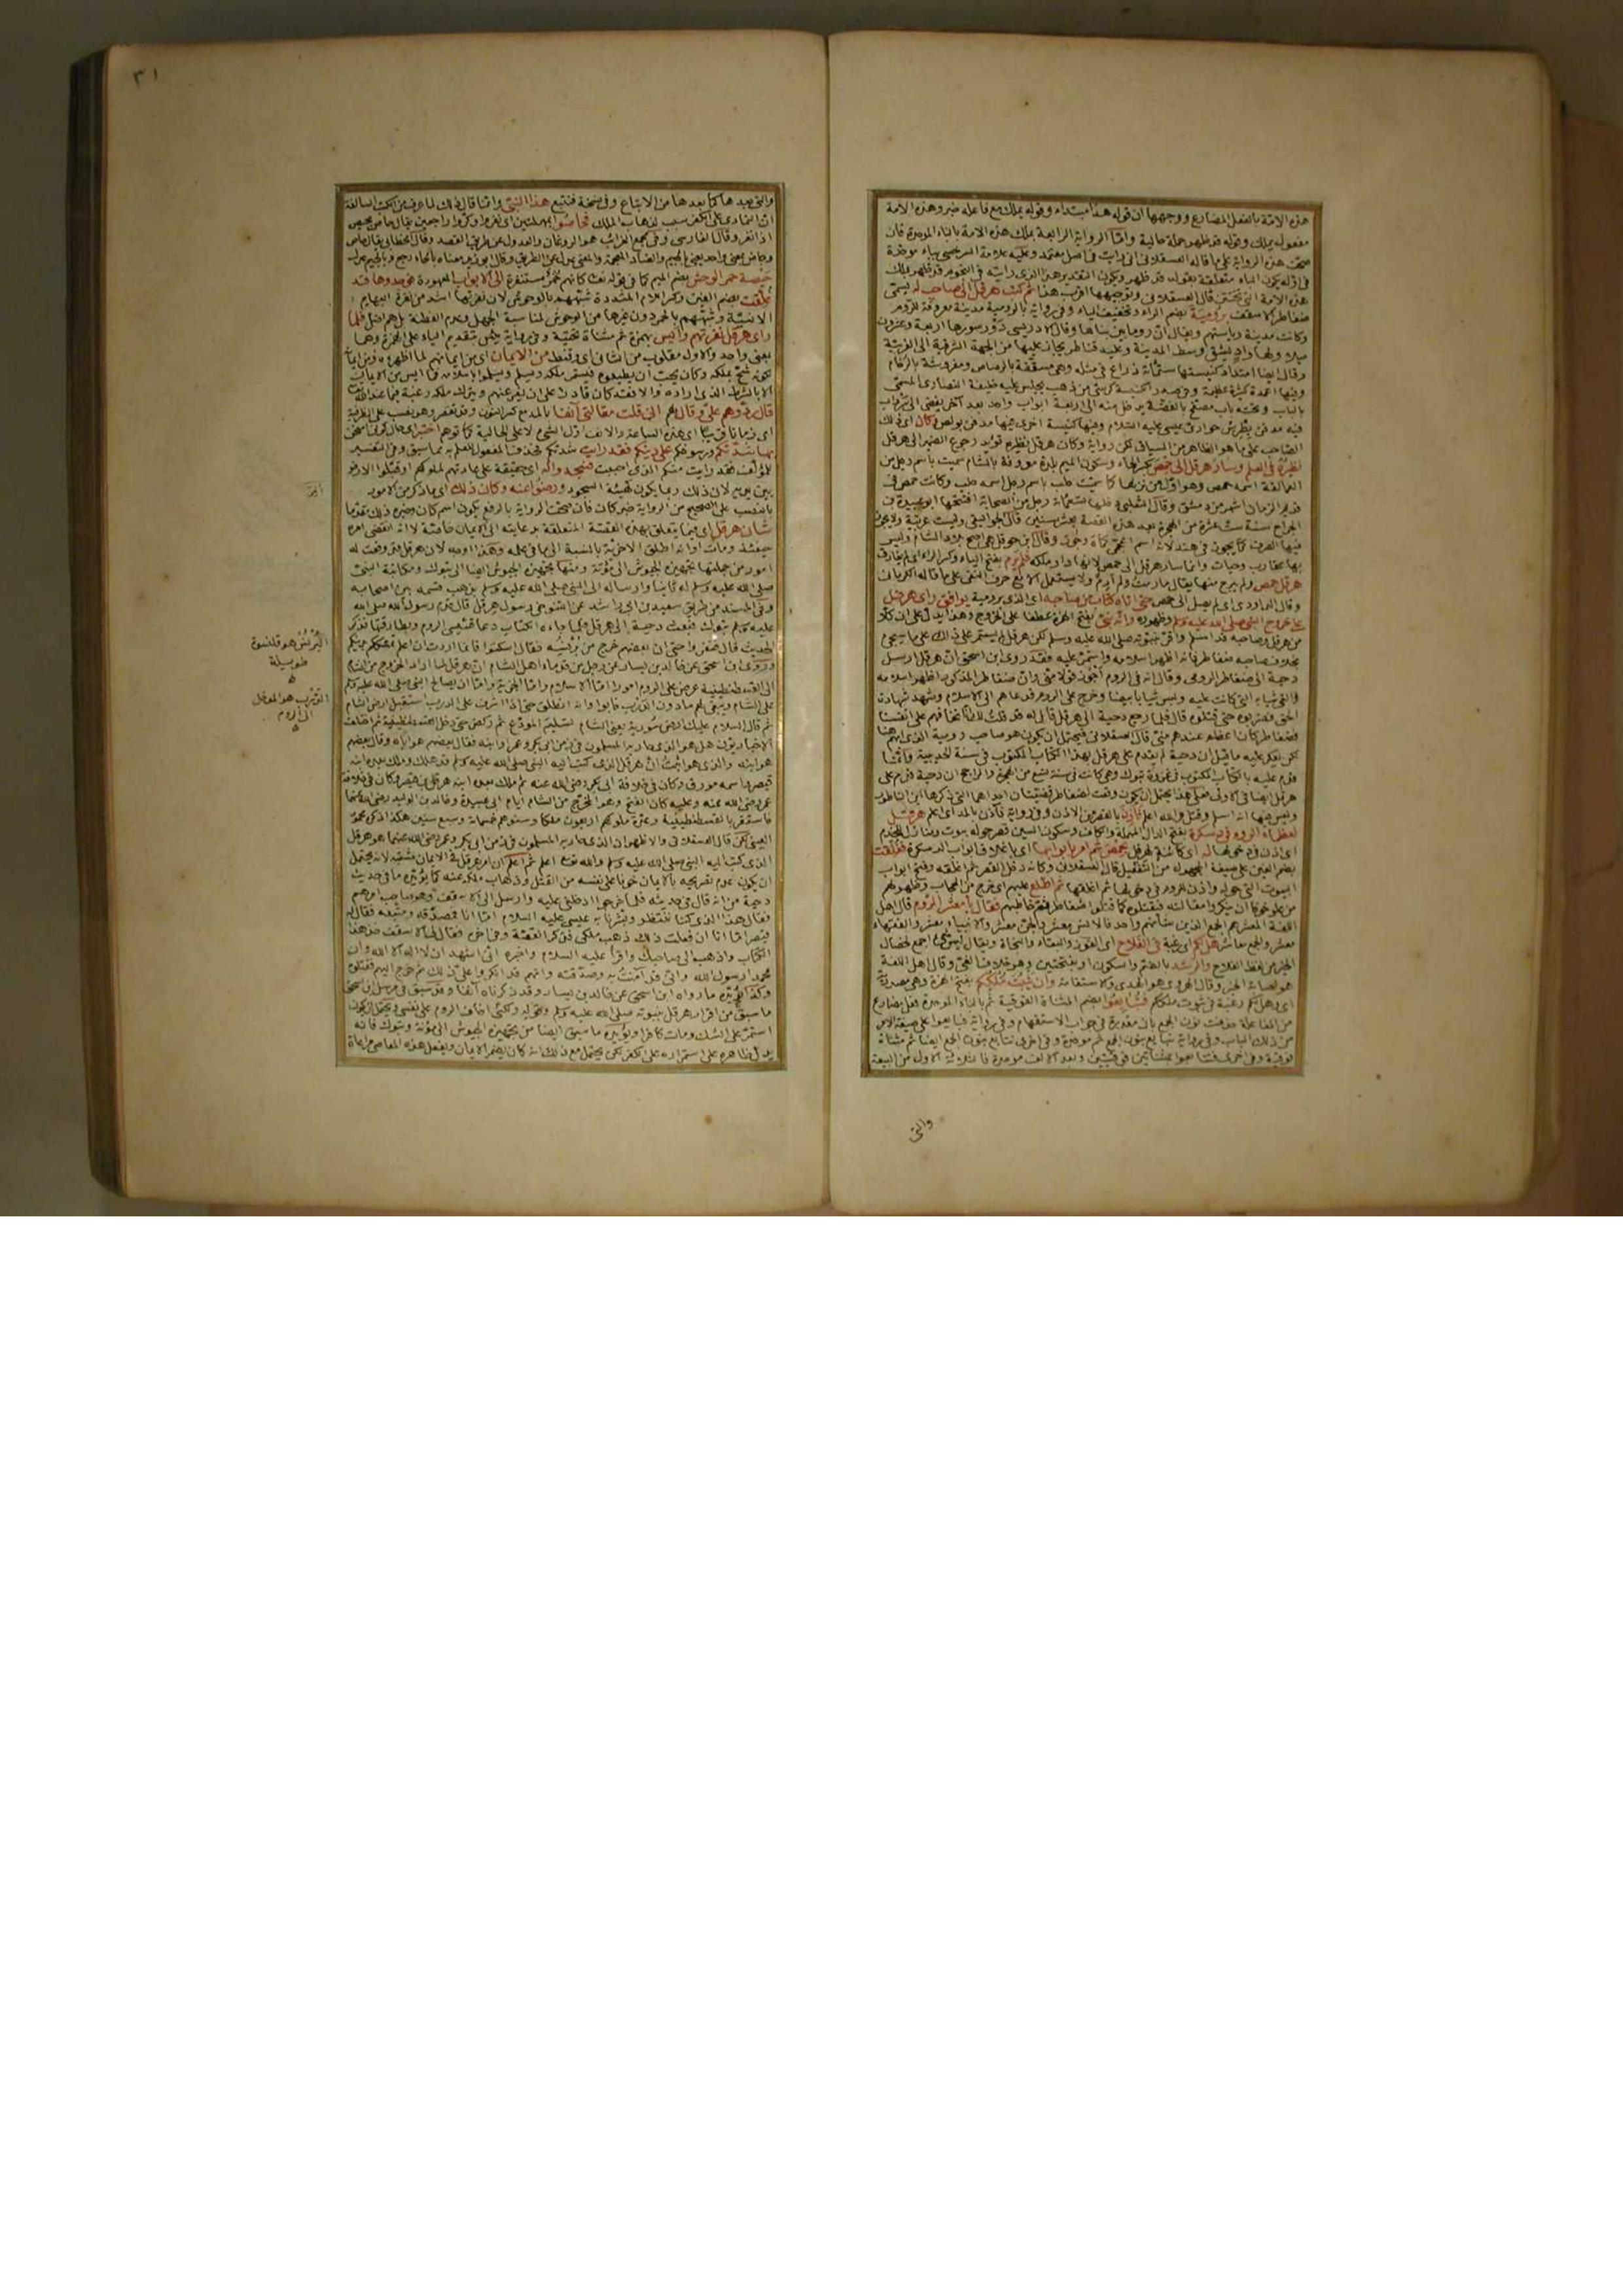 هذه الامة بالفعل المضارع ووجهها ان قوله هذا مبتداء وقوله يملك مع فاعله خبر وهذه الامة
مفعول يملك وقوله قد ظهر جملة حالية واما الرواية الرابعة بملك هذه الامة بالباء الموحدة فان
صحت هذه الرواية على ما قاله العسقلاني اني رايت في اصل معتمد وعليه علامة السرخسي بباء موحدة
في اوله يكون الباء متعلقة بقوله قد ظهر ويكون التقدير هذا الذي رايته في النجوم قد ظهر بملك
هذه الامة التي تختتن قال العسقلاني وتوجيهها اقرب هذا ثم كتب هرقل الى صاحب له يسمى
ضغاطر الاسقف برومية بضم الراء وتخفيف الياء وفي رواية بالرومية مدينة معروفة للروم
وكانت مدينة رياستهم ويقال ان روما بن بناها وقال الادريسي دور سورها اربعة وعشرون
ميلا ولها واد يشق اوسط المدينة وعليه قناطر يجاز عليها من الجهة الشرقية الى الغربية
وقال ايضا امتداد كنيستها ستمائة ذراع في مثله وهي مسقفة بالرصاص ومفروشة بالرخام
وفيها اعمدة كثيرة عظيمة وفي صدر الكنيسة كرسي من ذهب يجلس عليه خليفة النصارى المسمى
بالباب وتحته باب مصفح بالفضة يدخل منه الى اربعة ابواب واحد بعد اخر يفضي الى سرداب
فيه مدفن بطرس حواري عيسى عليه السلام وفيها كنيسة اخرى فيها مدفن بولص وكان اي ذلك
الصاحب على ما هو الظاهر من السياق لكن رواية وكان هرقل نظيره تؤيد رجوع الضمير الى هرقل
نظيره في العلم وسار هرقل الى حمص بكسر الحاء وسكون الميم بلدة معروفة بالشام سميت باسم رجل من
العمالقة اسمه حمص وهو اول من نزلها كما سميت حلب باسم رجل اسمه حلب وكانت حمص في
قديم الزمان اشهر من دمشق وقال الثعلبي دخلها تسعمائة رجل من الصحابة افتتحها ابو عبيدة بن
الجراح سنة ست عشرة من الهجرة بعد هذه القصة بعشر سنين قال الجواليقي وليست عربية ولا يجوز
فيها الصرف كما يجوز في هند لانه اسم اعجمي كماه وجور وقال ابن حوقل هي اصح بلاد الشام وليس
بها عقارب وحيات وانما سار هرقل الى حمص لانها دار ملكه فلم يرم بفتح الياء وكسر الراء اي لم يفارق
هرقل حمص ولم يبرح منها يقال ما رمت ولم ارم ولا يستعمل الا مع حرف النفي على ما قاله الكرماني
وقال الداودي اي لم يصل الى حمص حتى اتاه كتاب من صاحبه اي الذي برومية يوافق راي هرقل
على خروج النبي صلى الله عليه وسلم وظهوره وانه نبي بفتح الهمزة عطفا على الخروج وهذا يدل على ان كلا
من هرقل وصاحبه قد اسلم واقر بنبوته صلى الله عليه وسلم لكن هرقل لم يستمر على ذلك على ما سيجيء
بخلاف صاحبه ضغاطر فانه اظهر اسلامه واستمر عليه فقد روى ابن اسحق ان هرقل ارسل
دحية الى ضغاطر الرومي وقال انه في الروم اجوز قولا مني وان ضغاطر المذكور اظهر اسلامه
والقى ثيابه التي كانت عليه ولبس ثيابا بيضا وخرج على الروم فدعاهم الى الاسلام وشهد شهادة
الحق فضربوه حتى قتلوه قال فلما رجع دحية الى هرقل قال له قد قلت لك انا نخافهم على انفسنا
فضغاطر كان اعظم عندهم مني قال العسقلاني فيحتمل ان يكون هو صاحب رومية الذي ابهم هنا
لكن يعكر عليه ما قيل ان دحية لم يقدم على هرقل بهذا الكتاب المكتوب في سنة الحديبية وانما
قدم عليه بالكتاب المكتوب في غزوة تبوك وهي كانت في سنة تسع من الهجرة والراجح ان دحية قدم على
هرقل ايضا في الاولى فعلى هذا يحتمل ان يكون وقعت لضغاطر قضيتان احداهما التي ذكرها ابن الناطور
وليس فيها انه اسلم وقتل والله اعلم فاذن بالقصر من الاذن وفي رواية فآذن بالمد اي اعلم هرقل
لعظماء الروم في دسكرة بفتح الدال المهملة والكاف وسكون السين قصر حوله بيوت ومنازل للخدم
اي اذن في دخولها له اي كائنة لهرقل بحمص ثم امر بابوابها اي باغلاق ابواب الدسكرة فغلقت
بضم الغين على صيغة المجهول من التفعيل قال العسقلاني وكانه دخل القصر ثم اغلقه وفتح ابواب
البيوت التي حوله واذن للروم في دخولها ثم اغلقها ثم اطلع عليهم اي خرج من الحجاب وظهر لهم
من علو خوفا ان ينكروا مقالته فيقتلوه كما قتلوا ضغاطر ثم خاطبهم فقال يا معشر الروم قال اهل
اللغة المعشر هم الجمع الذين شانهم واحد فالانس معشر والجن معشر والانبياء معشر والفقهاء
معشر والجمع معاشر هل لكم اي رغبة في الفلاح اي الفوز والبقاء والنجاة ويقال ليس شيء اجمع لخصال
الخير من لفظ الفلاح والرشد بالضم والسكون او بفتحتين وهو خلاف الغي وقال اهل اللغة
هو اصابة الخير وقال الهروي هو الهدى والاستقامة وان يثبت ملككم بفتح الهمزة وهي مصدرية
اي وهل لكم رغبة في ثبوت ملككم فتبايعوا بضم المثناة الفوقية ثم بالباء الموحدة فعل مضارع
من المفاعلة حذفت نون الجمع بان مقدرة في جواب الاستفهام وفي رواية فبايعوا على صيغة الامر
من ذلك الباب وفي رواية نبايع بنون الجمع ثم موحدة وفي اخرى نتابع بنون الجمع ايضا ثم مثناة
فوقية وفي اخرى فتتابعوا بمثناتين فوقيتين وبعد الالف موحدة فالثلاثة الاول من البيعة
والتي
٣١
والتي بعدها كما بعدها من الاتباع وفي نسخة فنتبع هذا النبي وانما قال ذلك لما عرف من الكتب السالفة
ان التمادي على الكفر سبب لذهاب الملك فحاصوا بمهملتين اي نفروا وكروا راجعين يقال حاص يحيص
اذا نفر وقال الفارسي وفي مجمع الغرائب هو الروغان والعدول عن طريق القصد وقال الخطابي يقال حاص
وجاض بمعنى واحد يعني بالجيم والضاد المعجمة والمعنى عدل عن الطريق وقال ابو زيد معناه بالحاء رجع وبالجيم عدل
حيصة حمر الوحش بضم الميم كما في قوله تعالى كانهم حمر مستنفرة الى الابواب المعهودة فوجدوها قد
غلقت بضم الغين وكسر اللام المشددة شبههم بالوحوش لان نفرتها اشد من نفرة البهائم
الانسية وشبههم بالحمر دون غيرها من الوحوش لمناسبة الجهل وعدم الفطنة بل هم اضل فلما
راى هرقل نفرتهم وايس بهمزة ثم مثناة تحتية وفي رواية يئس بتقديم الياء على الهمزة وهما
بمعنى واحد والاول مقلوب من الثاني اي وقنط من الايمان اي من ايمانهم لما اظهروه ومن ايمانه
لكونه شح بملكه وكان يحب ان يطيعوه فيستمر ملكه ويسلم ويسلموا باسلامه فما ايس من الايمان
الا بالشرط الذي اراده والا فقد كان قادرا على ان يفر عنهم ويترك ملكه رغبة فيما عند الله تعالى
قال ردوهم علي وقال لهم اني قلت مقالتي آنفا بالمد مع كسر النون وقد تقصر وهو نصب على الظرفية
اي زمانا قريبا اي هذه الساعة والانف اول الشيء لا على الحالية كما توهم اختبر اي حال كوني امتحن
بها شدتكم ورسوخكم على دينكم فقد رايت شدتكم فحذف المفعول للعلم به مما سبق وفي التفسير
للمؤلف فقد رايت منكم الذي احببت فسجدوا له اي حقيقة على عادتهم لملوكهم او قبلوا الارض
بين يديه لان ذلك ربما يكون كهيئة السجود ورضوا عنه وكان ذلك اي ما ذكر من الامور
بالنصب على الصحيح من الرواية خبر كان فان صحت الرواية بالرفع يكون اسم كان وخبره ذلك مقدما
شان هرقل اي فيما يتعلق بهذه القصة المتعلقة بدعايته الى الايمان خاصة لا انه انقضى امره
حينئذ ومات او انه اطلق الاخرية بالنسبة الى ما في علمه وهذا اوجه لان هرقل قد وقعت له
امور من جملتها تجهيز الجيوش الى مؤتة ومنها تجهيز الجيوش ايضا الى تبوك ومكاتبة النبي
صلى الله عليه وسلم له ثانيا وارساله الى النبي صلى الله عليه وسلم بذهب فقسمه بين اصحابه
وفي المسند من طريق سعيد بن ابي راشد عن التنوخي رسول هرقل قال قدم رسول الله صلى الله
عليه وسلم تبوك فبعث دحية الى هرقل فلما جاءه الكتاب دعا قسيسي الروم وبطارقتها فذكر
الحديث قال فنخروا حتى ان بعضهم خرج من برنسه فقال اسكتوا فانما اردت ان اعلم تمسككم بدينكم
وروى ابن اسحق عن خالد بن يسار عن رجل من قدماء اهل الشام ان هرقل لما اراد الخروج من الشام
الى القسطنطينية عرض على الروم امورا اما الاسلام واما الجزية واما ان يصالح النبي صلى الله عليه وسلم
على الشام ويبقى لهم ما دون الدرب فابوا وانه انطلق حتى اذا اشرف على الدرب استقبل ارض الشام
ثم قال السلام عليك ارض سورية يعني الشام تسليم المودع ثم ركض حتى دخل القسطنطينية ثم اختلف
الاخباريون هل هو الذي حاربه المسلمون في زمن ابي بكر وعمر او ابنه فقال بعضهم هو اياه وقال بعضهم
هو ابنه والذي هو اثبت ان هرقل الذي كتب اليه النبي صلى الله عليه وسلم قد هلك وملك بعده ابنه
قيصر واسمه مورق وكان في خلافة ابي بكر رضي الله عنه ثم ملك بعده ابنه هرقل بن قيصر وكان في خلافة
عمر رضي الله عنه وعليه كان الفتح وهو المخرج من الشام ايام ابي عبيدة وخالد بن الوليد رضي الله عنهما
فاستقر بالقسطنطينية وعدة ملوكهم اربعون ملكا وسنوهم خمسمائة وسبع سنين هكذا ذكر محمود
العيني لكن قال العسقلاني والاظهر ان الذي حاربه المسلمون في زمن ابي بكر وعمر رضي الله عنهما هو هرقل
الذي كتب اليه النبي صلى الله عليه وسلم والله تعالى اعلم ثم اعلم ان امر هرقل في الايمان مشتبه لانه يحتمل
ان يكون عدم تصريحه بالايمان خوفا على نفسه من القتل وذهاب ملكه عنه كما يؤيده ما في حديث
دحية من انه قال في حديثه فلما خرجوا ادخلني عليه وارسل الى الاسقف وهو صاحب امرهم
فقال هذا الذي كنا ننتظر وبشرنا به عيسى عليه السلام اما انا فمصدقه ومتبعه فقال له
قيصر اما انا ان فعلت ذلك ذهب ملكي فذكر القصة وفي اخره فقال لي الاسقف خذ هذا
الكتاب واذهب الى صاحبك واقرأ عليه السلام واخبره اني اشهد ان لا اله الا الله وان
محمدا رسول الله واني قد آمنت به وصدقته وانهم قد انكروا علي ذلك ثم خرج اليهم فقتلوه
وكذا يؤيده ما رواه ابن اسحق عن خالد بن يسار وقد ذكرناه آنفا وقد سبق في مرسل ابن اسحق
ما سبق من اقرار هرقل بنبوته صلى الله عليه وسلم وقوله ولكني اخاف الروم على نفسي ويحتمل ان يكون
استمر على الشك ومات كافرا ويؤيده ما سبق ايضا من تجهيزه الجيوش الى مؤتة وتبوك فانه
يدل ظاهره على استمراره على الكفر لكن يحتمل مع ذلك انه كان يضمر الايمان ويفعل هذه المعاصي مراعاة
البرنس هو قلنسوة
طويلة
الدرب هو المدخل
الى الروم